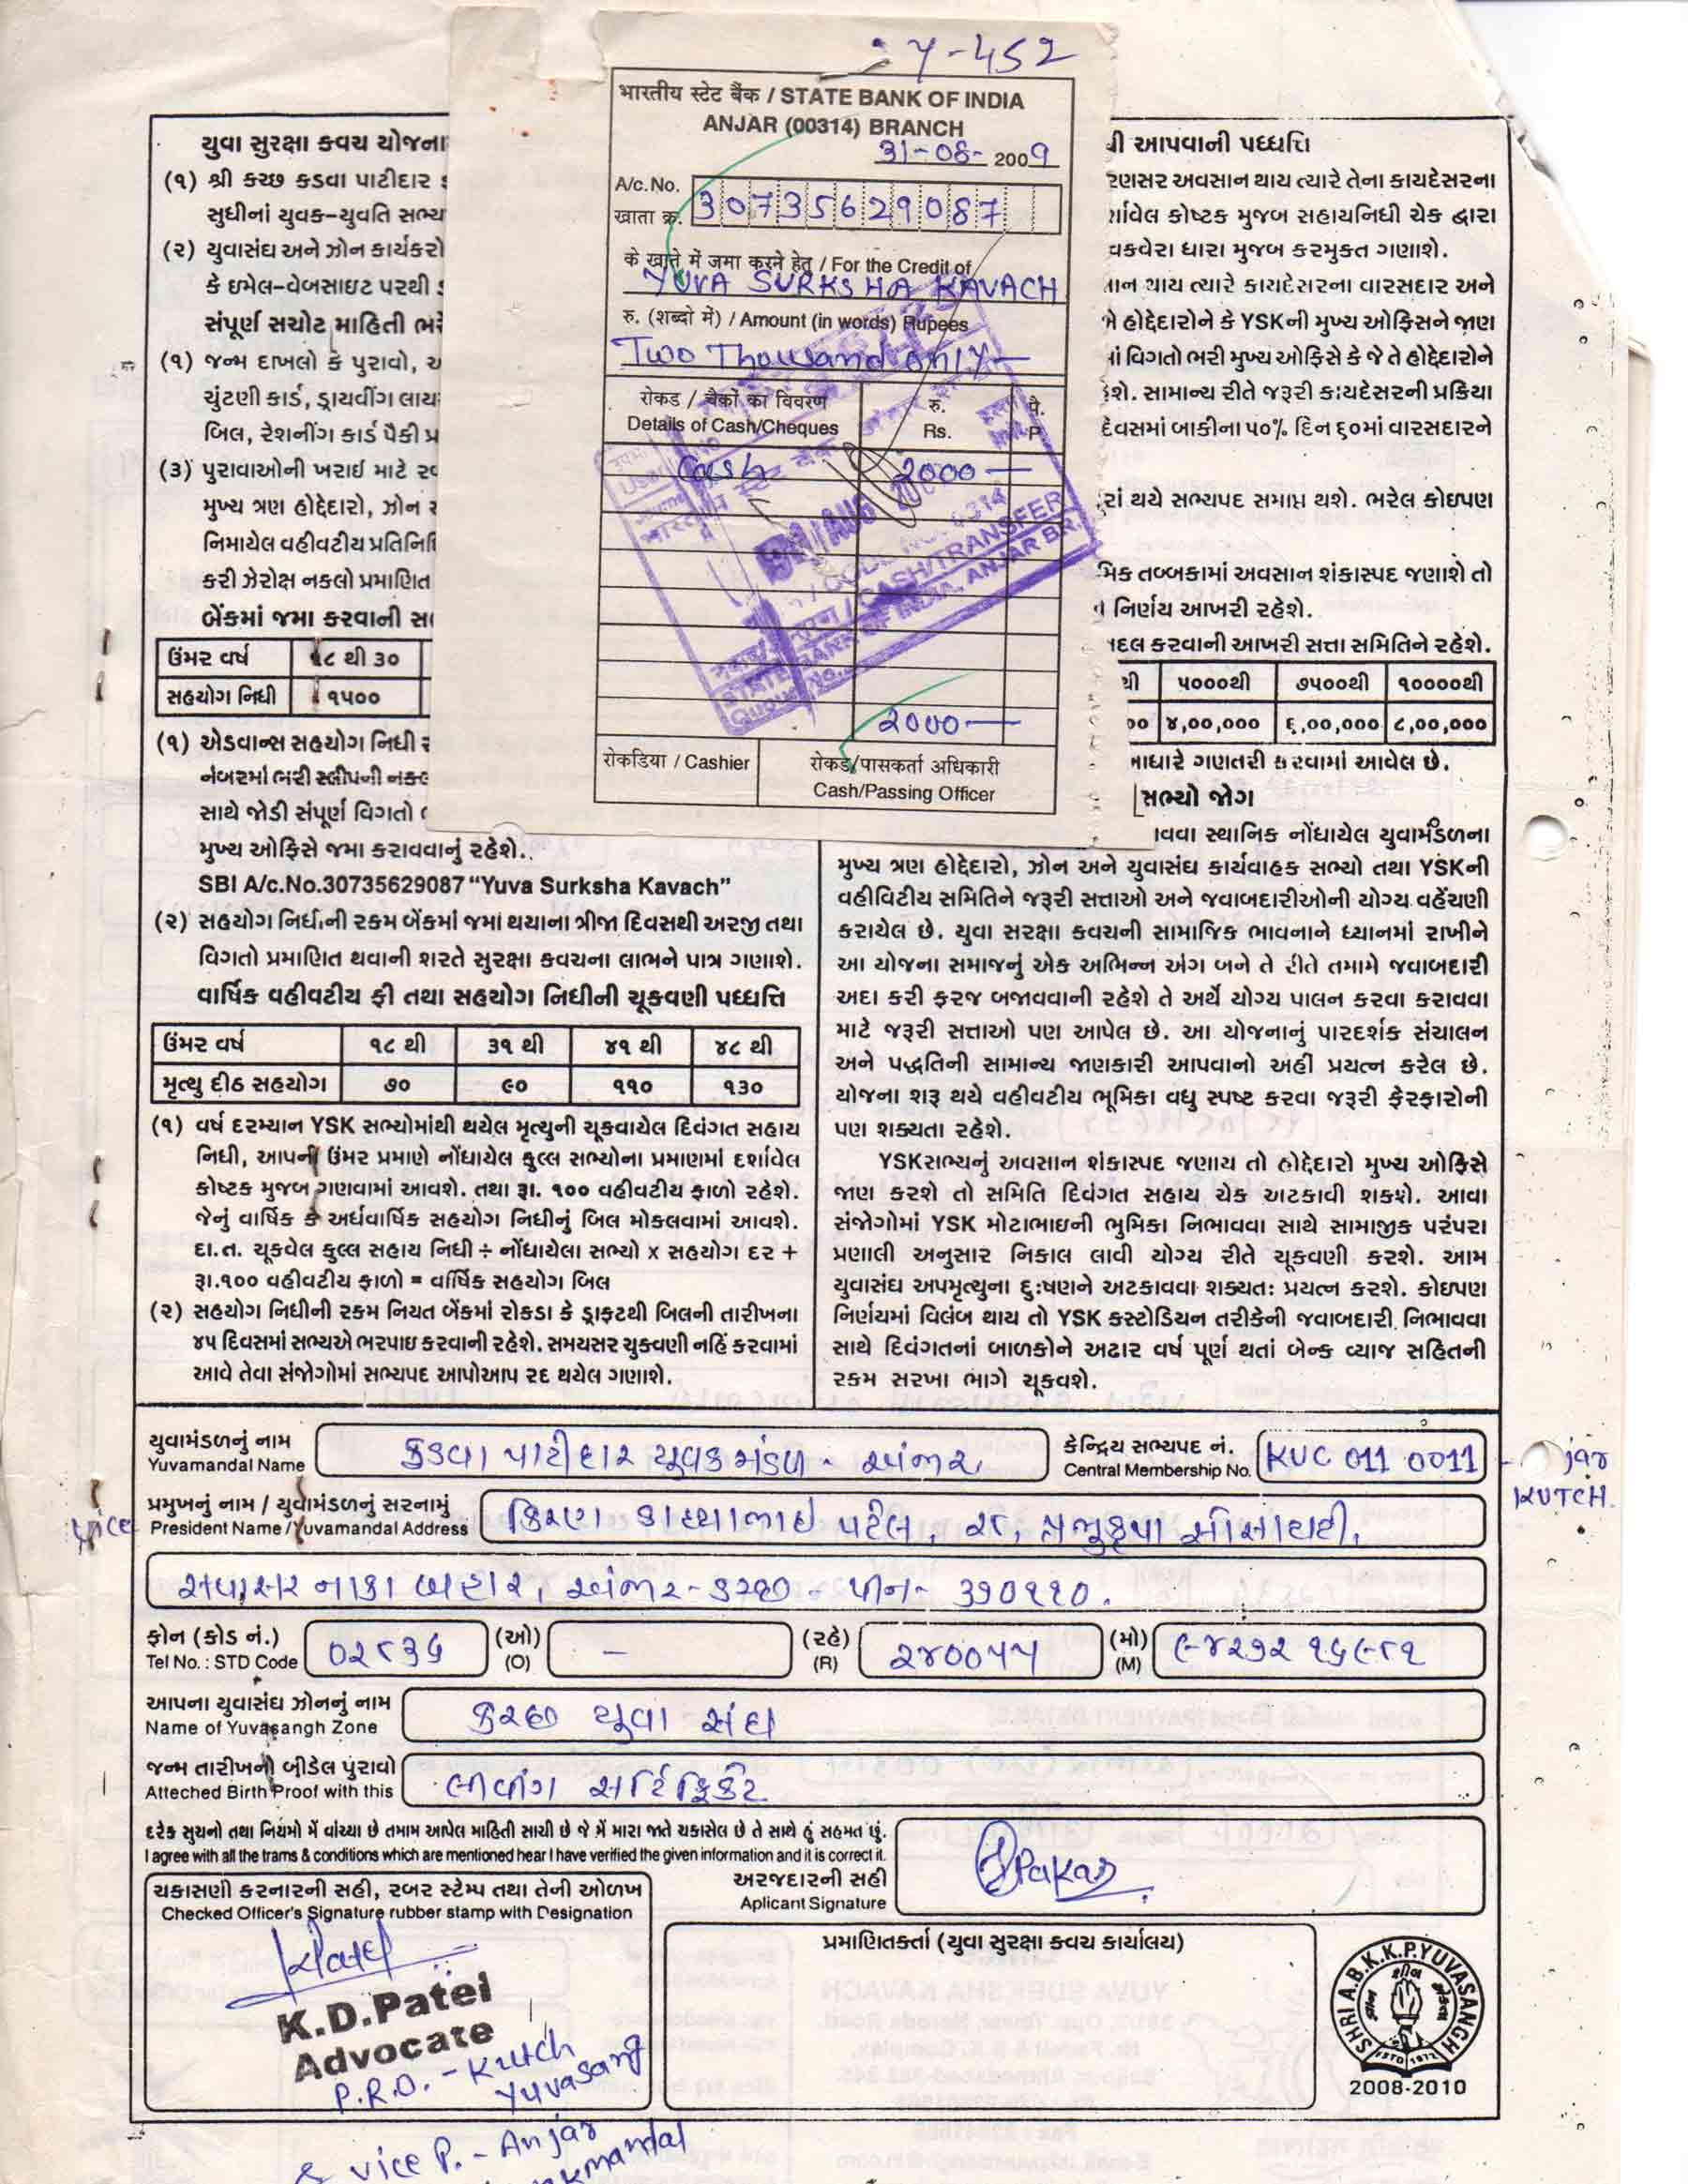 y-452
भारतीय स्टेट बैंक / STATE BANK OF INDIA
ANJAR (00314) BRANCH
31-08- 2009
A/c. No.
खाता क्र. 30735629087
के खाते में जमा करने हेतु / For the Credit of
YUVA SURKSHA KAVACH
रु. (शब्दो में) / Amount (in words) Rupees
Two Thousand only
रोकड / बैंकों का विवरण रु. पै.
Details of Cash/Cheques Rs. P.
Cash 2000
2000
रोकडिया / Cashier रोकड/पासकर्ता अधिकारी
Cash/Passing Officer
યુવા સુરક્ષા કવચ યોજના
(૧) શ્રી કચ્છ કડવા પાટીદાર
સુધીનાં યુવક-યુવતિ સભ્ય
(૨) યુવાસંઘ અને ઝોન કાર્યકરો
કે ઇમેલ-વેબસાઇટ પરથી
સંપૂર્ણ સચોટ માહિતી ભરે
(૧) જન્મ દાખલો કે પુરાવો,
ચુંટણી કાર્ડ, ડ્રાયવીંગ લાય
બિલ, રેશનીંગ કાર્ડ પૈકી પ્ર
(૩) પુરાવાઓની ખરાઈ માટે
મુખ્ય ત્રણ હોદ્દેદારો, ઝોન
નિમાયેલ વહીવટીય પ્રતિનિ
કરી ઝેરોક્ષ નકલો પ્રમાણિત
બેંકમાં જમા કરવાની
ઉંમર વર્ષ ૧૮ થી ૩૦
સહયોગ નિધી ૧૫૦૦
(૧) એડવાન્સ સહયોગ નિધી
નંબરમાં ભરી સ્લીપની નકલ
સાથે જોડી સંપૂર્ણ વિગતો
મુખ્ય ઓફિસે જમા કરાવવાનું રહેશે.
SBI A/c.No.30735629087 “Yuva Surksha Kavach”
(૨) સહયોગ નિધીની રકમ બેંકમાં જમાં થયાના ત્રીજા દિવસથી અરજી તથા
વિગતો પ્રમાણિત થવાની શરતે સુરક્ષા કવચના લાભને પાત્ર ગણાશે.
વાર્ષિક વહીવટીય ફી તથા સહયોગ નિધીની ચૂકવણી પધ્ધતિ
ઉંમર વર્ષ ૧૮ થી ૩૧ થી ૪૧ થી ૪૮ થી
મૃત્યુ દીઠ સહયોગ ૭૦ ૯૦ ૧૧૦ ૧૩૦
(૧) વર્ષ દરમ્યાન YSK સભ્યોમાંથી થયેલ મૃત્યુની ચૂકવાયેલ દિવંગત સહાય
નિધી, આપની ઉંમર પ્રમાણે નોંધાયેલ કુલ્લ સભ્યોના પ્રમાણમાં દર્શાવેલ
કોષ્ટક મુજબ ગણવામાં આવશે. તથા રૂા. ૧૦૦ વહીવટીય ફાળો રહેશે.
જેનું વાર્ષિક કે અર્ધવાર્ષિક સહયોગ નિધીનું બિલ મોકલવામાં આવશે.
દા.ત. ચૂકવેલ કુલ્લ સહાય નિધી ÷ નોંધાયેલા સભ્યો x સહયોગ દર +
રૂા.૧૦૦ વહીવટીય ફાળો = વાર્ષિક સહયોગ બિલ
(૨) સહયોગ નિધીની રકમ નિયત બેંકમાં રોકડા કે ડ્રાફટથી બિલની તારીખના
૪૫ દિવસમાં સભ્યએ ભરપાઇ કરવાની રહેશે. સમયસર ચુકવણી નહિં કરવામાં
આવે તેવા સંજોગોમાં સભ્યપદ આપોઆપ રદ થયેલ ગણાશે.
આપવાની પધ્ધતિ
અવસાન થાય ત્યારે તેના કાયદેસરના
કોષ્ટક મુજબ સહાયનિધી ચેક દ્વારા
ધારા મુજબ કરમુક્ત ગણાશે.
થાય ત્યારે કાયદેસરના વારસદાર અને
હોદ્દેદારોને કે YSKની મુખ્ય ઓફિસને જાણ
વિગતો ભરી મુખ્ય ઓફિસે કે જે તે હોદ્દેદારોને
સામાન્ય રીતે જરૂરી કાયદેસરની પ્રક્રિયા
બાકીના ૫૦% દિન ૬૦માં વારસદારને
થયે સભ્યપદ સમાપ્ત થશે. ભરેલ કોઇપણ
તબ્બકામાં અવસાન શંકાસ્પદ જણાશે તો
નિર્ણય આખરી રહેશે.
કરવાની આખરી સત્તા સમિતિને રહેશે.
થી ૫૦૦૦થી ૭૫૦૦થી ૧૦૦૦૦થી
૪,૦૦,૦૦૦ ૬,૦૦,૦૦૦ ૮,૦૦,૦૦૦
ગણતરી કરવામાં આવેલ છે.
સભ્યો જોગ
સ્થાનિક નોંધાયેલ યુવામંડળના
મુખ્ય ત્રણ હોદ્દેદારો, ઝોન અને યુવાસંઘ કાર્યવાહક સભ્યો તથા YSKની
વહીવિટીય સમિતિને જરૂરી સત્તાઓ અને જવાબદારીઓની યોગ્ય વહેંચણી
કરાયેલ છે. યુવા સરક્ષા કવચની સામાજિક ભાવનાને ધ્યાનમાં રાખીને
આ યોજના સમાજનું એક અભિન્ન અંગ બને તે રીતે તમામે જવાબદારી
અદા કરી ફરજ બજાવવાની રહેશે તે અર્થે યોગ્ય પાલન કરવા કરાવવા
માટે જરૂરી સત્તાઓ પણ આપેલ છે. આ યોજનાનું પારદર્શક સંચાલન
અને પદ્ધતિની સામાન્ય જાણકારી આપવાનો અહીં પ્રયત્ન કરેલ છે.
યોજના શરૂ થયે વહીવટીય ભૂમિકા વધુ સ્પષ્ટ કરવા જરૂરી ફેરફારોની
પણ શક્યતા રહેશે.
YSKસભ્યનું અવસાન શંકાસ્પદ જણાય તો હોદ્દેદારો મુખ્ય ઓફિસે
જાણ કરશે તો સમિતિ દિવંગત સહાય ચેક અટકાવી શકશે. આવા
સંજોગોમાં YSK મોટાભાઇની ભુમિકા નિભાવવા સાથે સામાજીક પરંપરા
પ્રણાલી અનુસાર નિકાલ લાવી યોગ્ય રીતે ચૂકવણી કરશે. આમ
યુવાસંઘ અપમૃત્યુના દુઃષણને અટકાવવા શક્યતઃ પ્રયત્ન કરશે. કોઇપણ
નિર્ણયમાં વિલંબ થાય તો YSK કસ્ટોડિયન તરીકેની જવાબદારી નિભાવવા
સાથે દિવંગતનાં બાળકોને અઢાર વર્ષ પૂર્ણ થતાં બેન્ક વ્યાજ સહિતની
રકમ સરખા ભાગે ચૂકવશે.
યુવામંડળનું નામ કડવા પાટીદાર યુવક મંડળ - અંજાર કેન્દ્રિય સભ્યપદ નં. KUC 011 0011
Yuvamandal Name Central Membership No.
પ્રમુખનું નામ / યુવામંડળનું સરનામું
President Name / Yuvamandal Address કિરણ કાન્થાભાઇ પટેલ, ૨૮, પ્રભુકૃપા સોસાયટી,
KUTCH.
સવાસર નાકા બહાર, અંજાર-કચ્છ - પીન- ૩૭૦૧૧૦.
ફોન (કોડ નં.) ૦૨૮૩૬ (ઓ) – (રહે) ૨૪૦૦૫૫ (મો) ૯૪૨૭૨ ૧૬૯૮૧
Tel No. : STD Code (O) (R) (M)
આપના યુવાસંઘ ઝોનનું નામ કચ્છ યુવા સંઘ
Name of Yuvasangh Zone
જન્મ તારીખનો બીડેલ પુરાવો લીવીંગ સર્ટિફિકેટ
Atteched Birth Proof with this
દરેક સુચનો તથા નિયમો મેં વાંચ્યા છે તમામ આપેલ માહિતી સાચી છે જે મેં મારા જાતે ચકાસેલ છે તે સાથે હું સહમત છું.
I agree with all the trams & conditions which are mentioned hear I have verified the given information and it is correct it.
અરજદારની સહી
Aplicant Signature
ચકાસણી કરનારની સહી, રબર સ્ટેમ્પ તથા તેની ઓળખ
Checked Officer's Signature rubber stamp with Designation
K.D.Patel
Advocate
P.R.O. - Kutch
Yuvasang
& vice P. - Anjar
પ્રમાણિતકર્તા (યુવા સુરક્ષા કવચ કાર્યાલય)
SHRI A.B.K.K.P.YUVASANGH
ESTD 1972
2008-2010